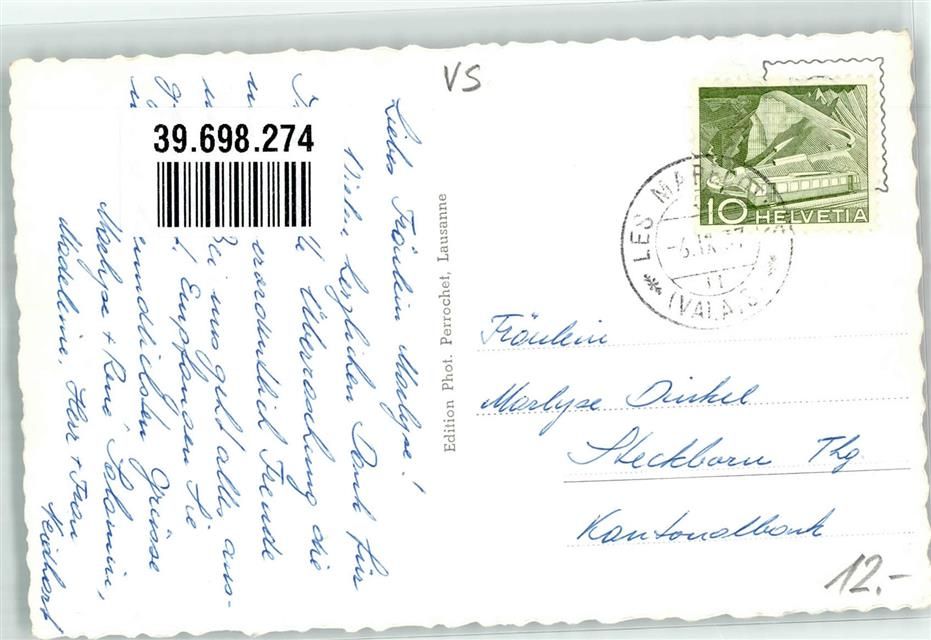 VS
39.698.274
Liebes Fräulein Marlyse!
Vielen herzlichen Dank für
Überraschung die
ausserordentlich Freude
Bei uns geht alles aus-
Empfangen Sie
freundlichsten Grüsse
Marlyse + René
Madeleine, Herr + Frau
Neidhart
Edition Phot. Perrochet, Lausanne
10 HELVETIA
LES
-6.IX
(VALAIS)
Fräulein
Marlyse Dinkel
Steckborn Thg
Kantonalbank
12.-